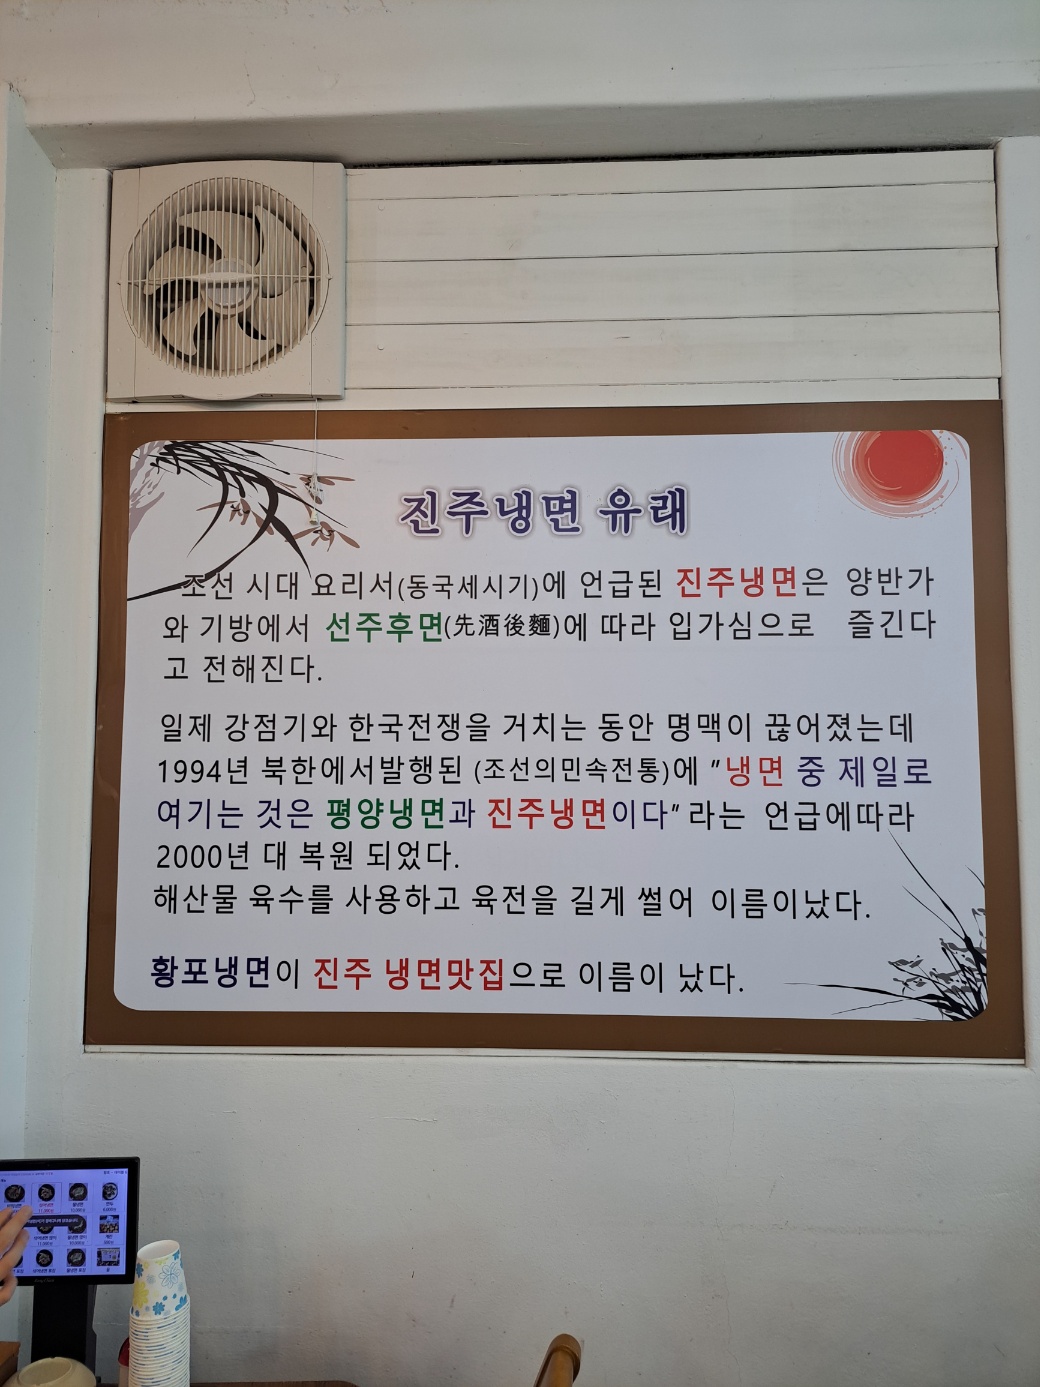 진주냉면 유래
조선 시대 요리서(동국세시기)에 언급된 진주냉면은 양반가
와 기방에서 선주후면(先酒後麵)에 따라 입가심으로 즐긴다
고 전해진다.
일제 강점기와 한국전쟁을 거치는 동안 명맥이 끊어졌는데
1994년 북한에서발행된 (조선의민속전통)에 "냉면 중 제일로
여기는 것은 평양냉면과 진주냉면이다" 라는 언급에따라
2000년 대 복원 되었다.
해산물 육수를 사용하고 육전을 길게 썰어 이름이났다.
황포냉면이 진주 냉면맛집으로 이름이 났다.